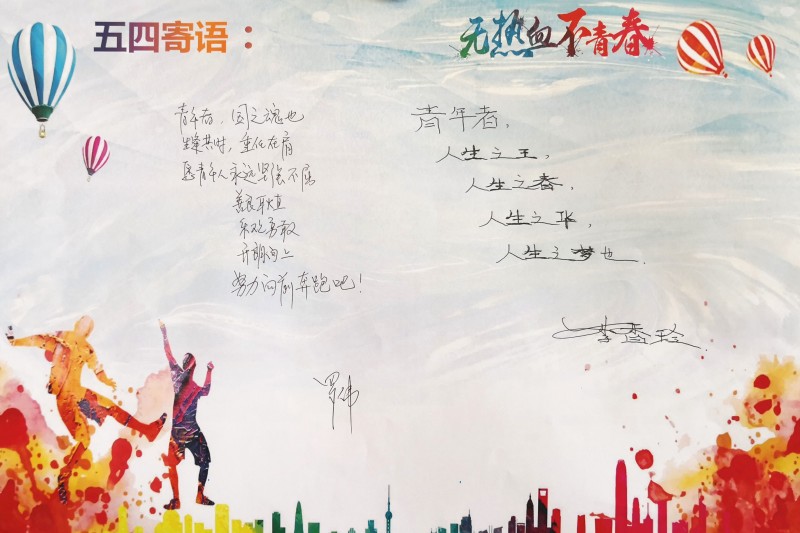 五四寄语：
无热血不青春
青年者，国之魂也
生逢其时，重任在肩
愿青年人永远坚强不屈
善良耿直
乐观勇敢
开朗向上
努力向前奔跑吧！
罗伟
青年者，
人生之王，
人生之春，
人生之华，
人生之梦也.
李香玲